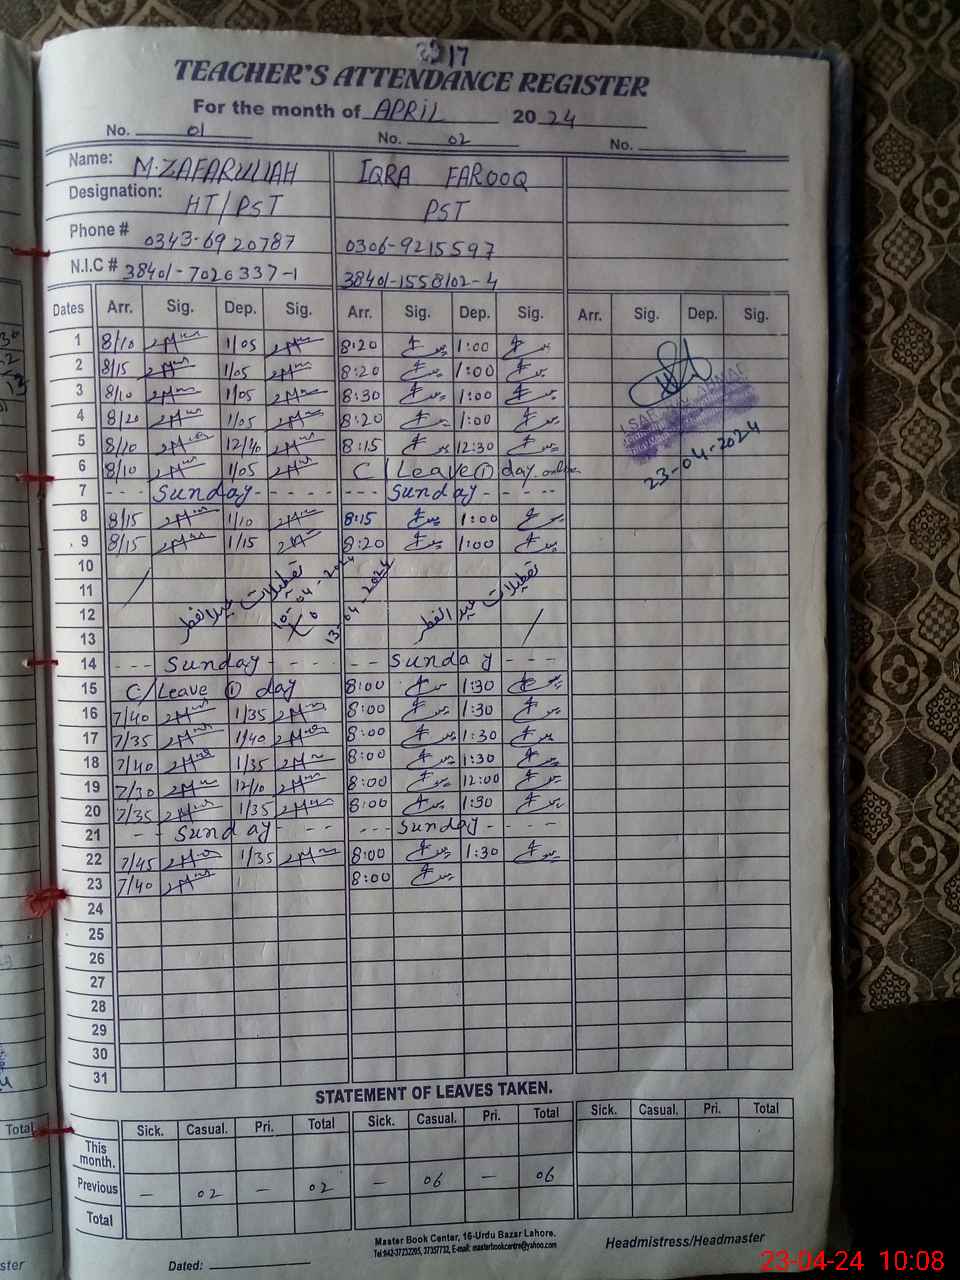 TEACHER'S ATTENDANCE REGISTER
For the month of APRIL 2024
No. 01 No. 02 No.
Name: M.ZAFARULLAH IQRA FAROOQ
Designation: HT/PST PST
Phone # 0343-6920787 0306-9215597
N.I.C # 38401-7020337-1 38401-1558102-4
Dates Arr. Sig. Dep. Sig. Arr. Sig. Dep. Sig. Arr. Sig. Dep. Sig.
1 8/10 1/05 8:20 1:00
2 8/15 1/05 8:20 1:00
3 8/10 1/05 8:30 1:00
4 8/20 1/05 8:20 1:00
5 8/10 12/40 8:15 12:30
23-04-2024
6 8/10 1/05 C/Leave ① day only
7 --- Sunday ----- --- Sunday ----
8 8/15 1/10 8:15 1:00
9 8/15 1/15 8:20 1:00
10
11 تعطیلات عید الفطر تعطیلات عید الفطر
12 10-04-2024 13-04-2024
13
14 --- Sunday - -- -- Sunday ---
15 C/Leave ① day 8:00 1:30
16 7/40 1/35 8:00 1:30
17 7/35 1/40 8:00 1:30
18 7/40 1/35 8:00 1:30
19 7/30 12/10 8:00 12:00
20 7/35 1/35 8:00 1:30
21 -- Sunday --- --- Sunday ----
22 7/45 1/35 8:00 1:30
23 7/40 8:00
24
25
26
27
28
29
30
31
STATEMENT OF LEAVES TAKEN.
Sick. Casual. Pri. Total Sick. Casual. Pri. Total Sick. Casual. Pri. Total
This month.
Previous — 02 — 02 — 06 — 06
Total
Master Book Center, 16-Urdu Bazar Lahore.
Tel:042-37232205, 37357732, E-mail: masterbookcentre@yahoo.com
Headmistress/Headmaster
Dated:
23-04-24 10:08